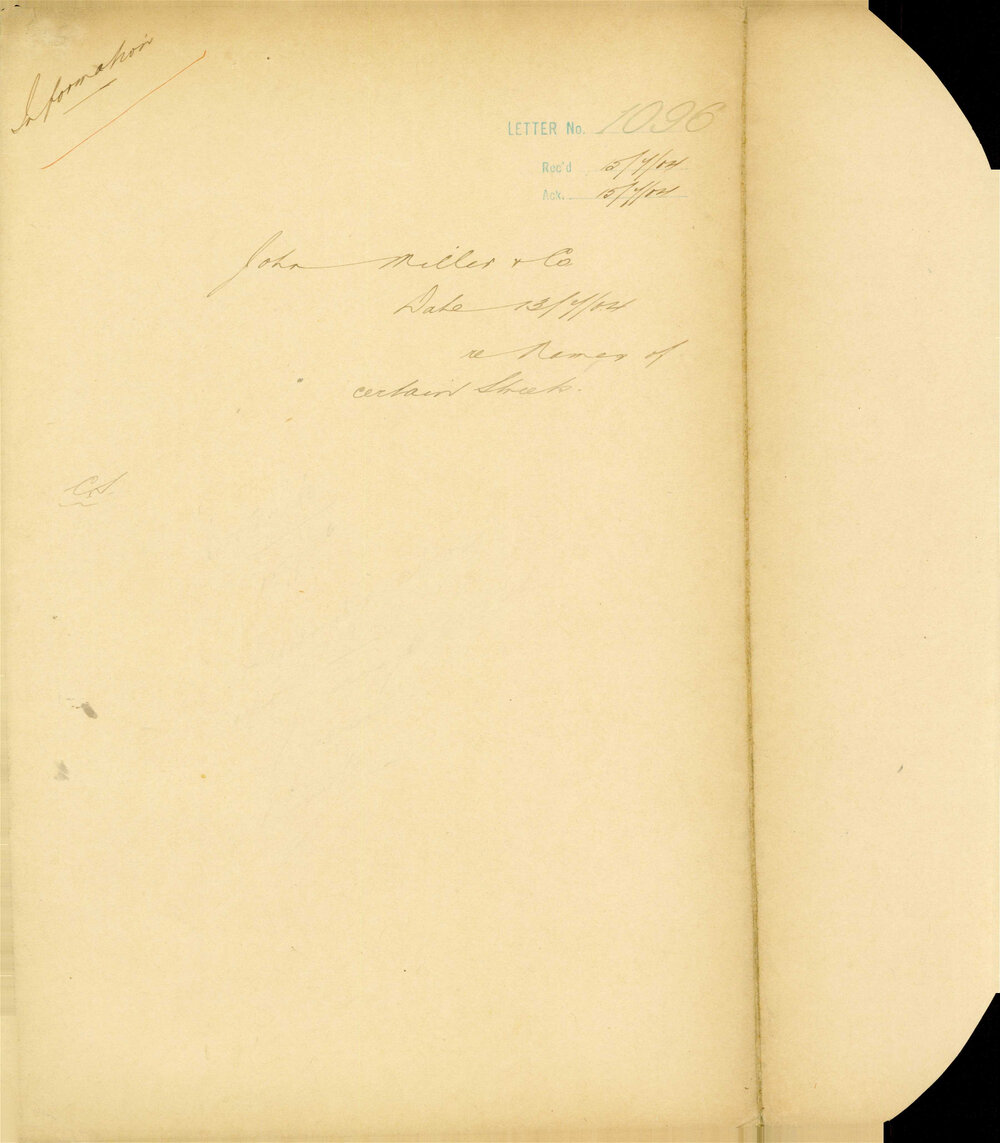 Information
LETTER No. 1096
Rec'd 15/7/04
Ack. 15/7/04
John Miller & Co
Date 13/7/04
re Names of
certain Streets.